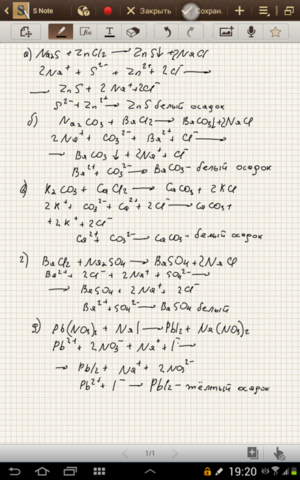 S Note
Закрыть
Сохран.
а) Na2S + ZnCl2 → ZnS↓ + 2NaCl
2Na⁺ + S²⁻ + Zn²⁺ + 2Cl⁻ →
→ ZnS + 2Na⁺ + 2Cl⁻
S²⁻ + Zn²⁺ → ZnS белый осадок
б) Na2CO3 + BaCl2 → BaCO3↓ + 2NaCl
2Na⁺ + CO3²⁻ + Ba²⁺ + Cl⁻ →
→ BaCO3↓ + 2Na⁺ + Cl⁻
Ba²⁺ + CO3²⁻ → BaCO3 - белый осадок
в) K2CO3 + CaCl2 → CaCO3 + 2KCl
2K⁺ + CO3²⁻ + Ca²⁺ + 2Cl⁻ → CaCO3 +
+ 2K⁺ + 2Cl⁻
Ca²⁺ + CO3²⁻ → CaCO3 - белый осадок
г) BaCl2 + Na2SO4 → BaSO4 + 2NaCl
Ba²⁺ + 2Cl⁻ + 2Na⁺ + SO4²⁻ →
→ BaSO4 + 2Na⁺ + 2Cl⁻
Ba²⁺ + SO4²⁻ → BaSO4 белый
д) Pb(NO3)2 + NaI → PbI2 + Na(NO3)2
Pb²⁺ + 2NO3⁻ + Na⁺ + I⁻ →
→ PbI2 + Na⁺ + 2NO3⁻
Pb²⁺ + I⁻ → PbI2 - жёлтый осадок
1/1
19:20